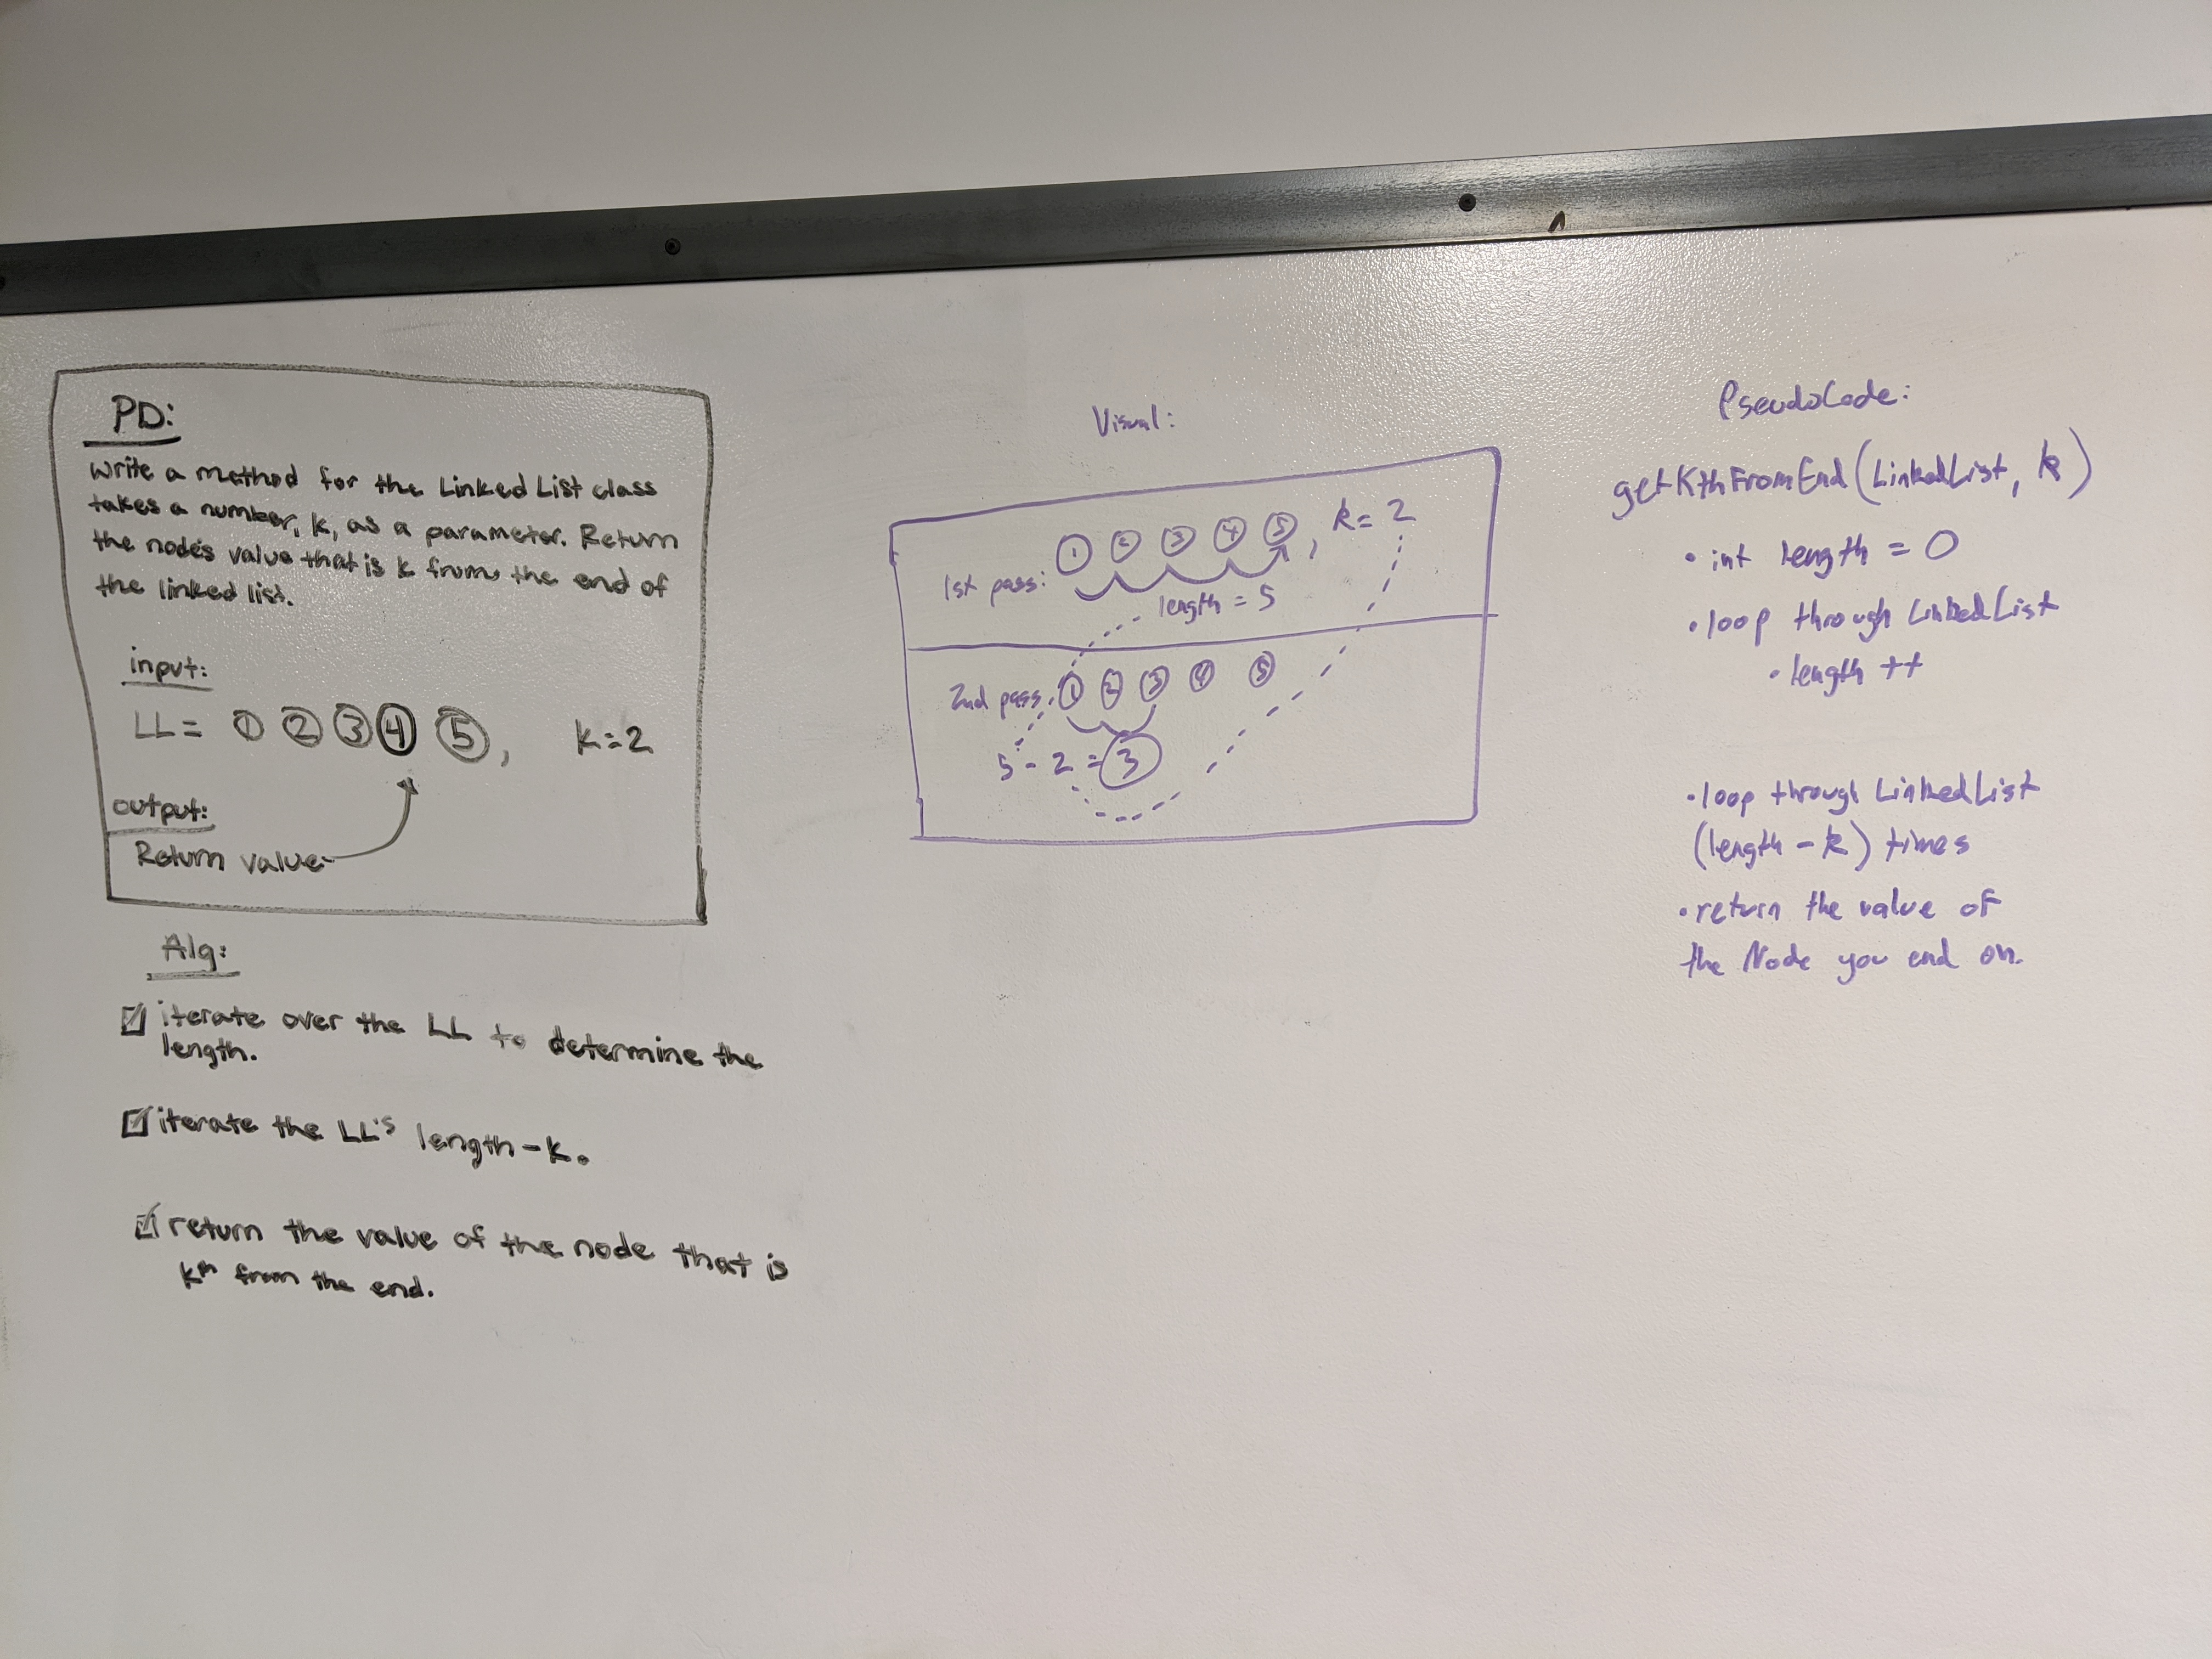 PD:
Write a method for the Linked List class
takes a number, k, as a parameter. Return
the node's value that is k from the end of
the linked list.
input:
LL = 1 2 3 4 5 , k=2
output:
Return value
Alg:
iterate over the LL to determine the
length.
iterate the LL's length-k.
return the value of the node that is
kth from the end.
Visual:
1 2 3 4 5 , k = 2
1st pass:
length = 5
2nd pass: 1 2 3 4 5
5 - 2 = 3
PseudoCode:
getKthFromEnd(LinkedList, k)
• int length = 0
• loop through LinkedList
• length ++
• loop through LinkedList
(length - k) times
• return the value of
the Node you end on.